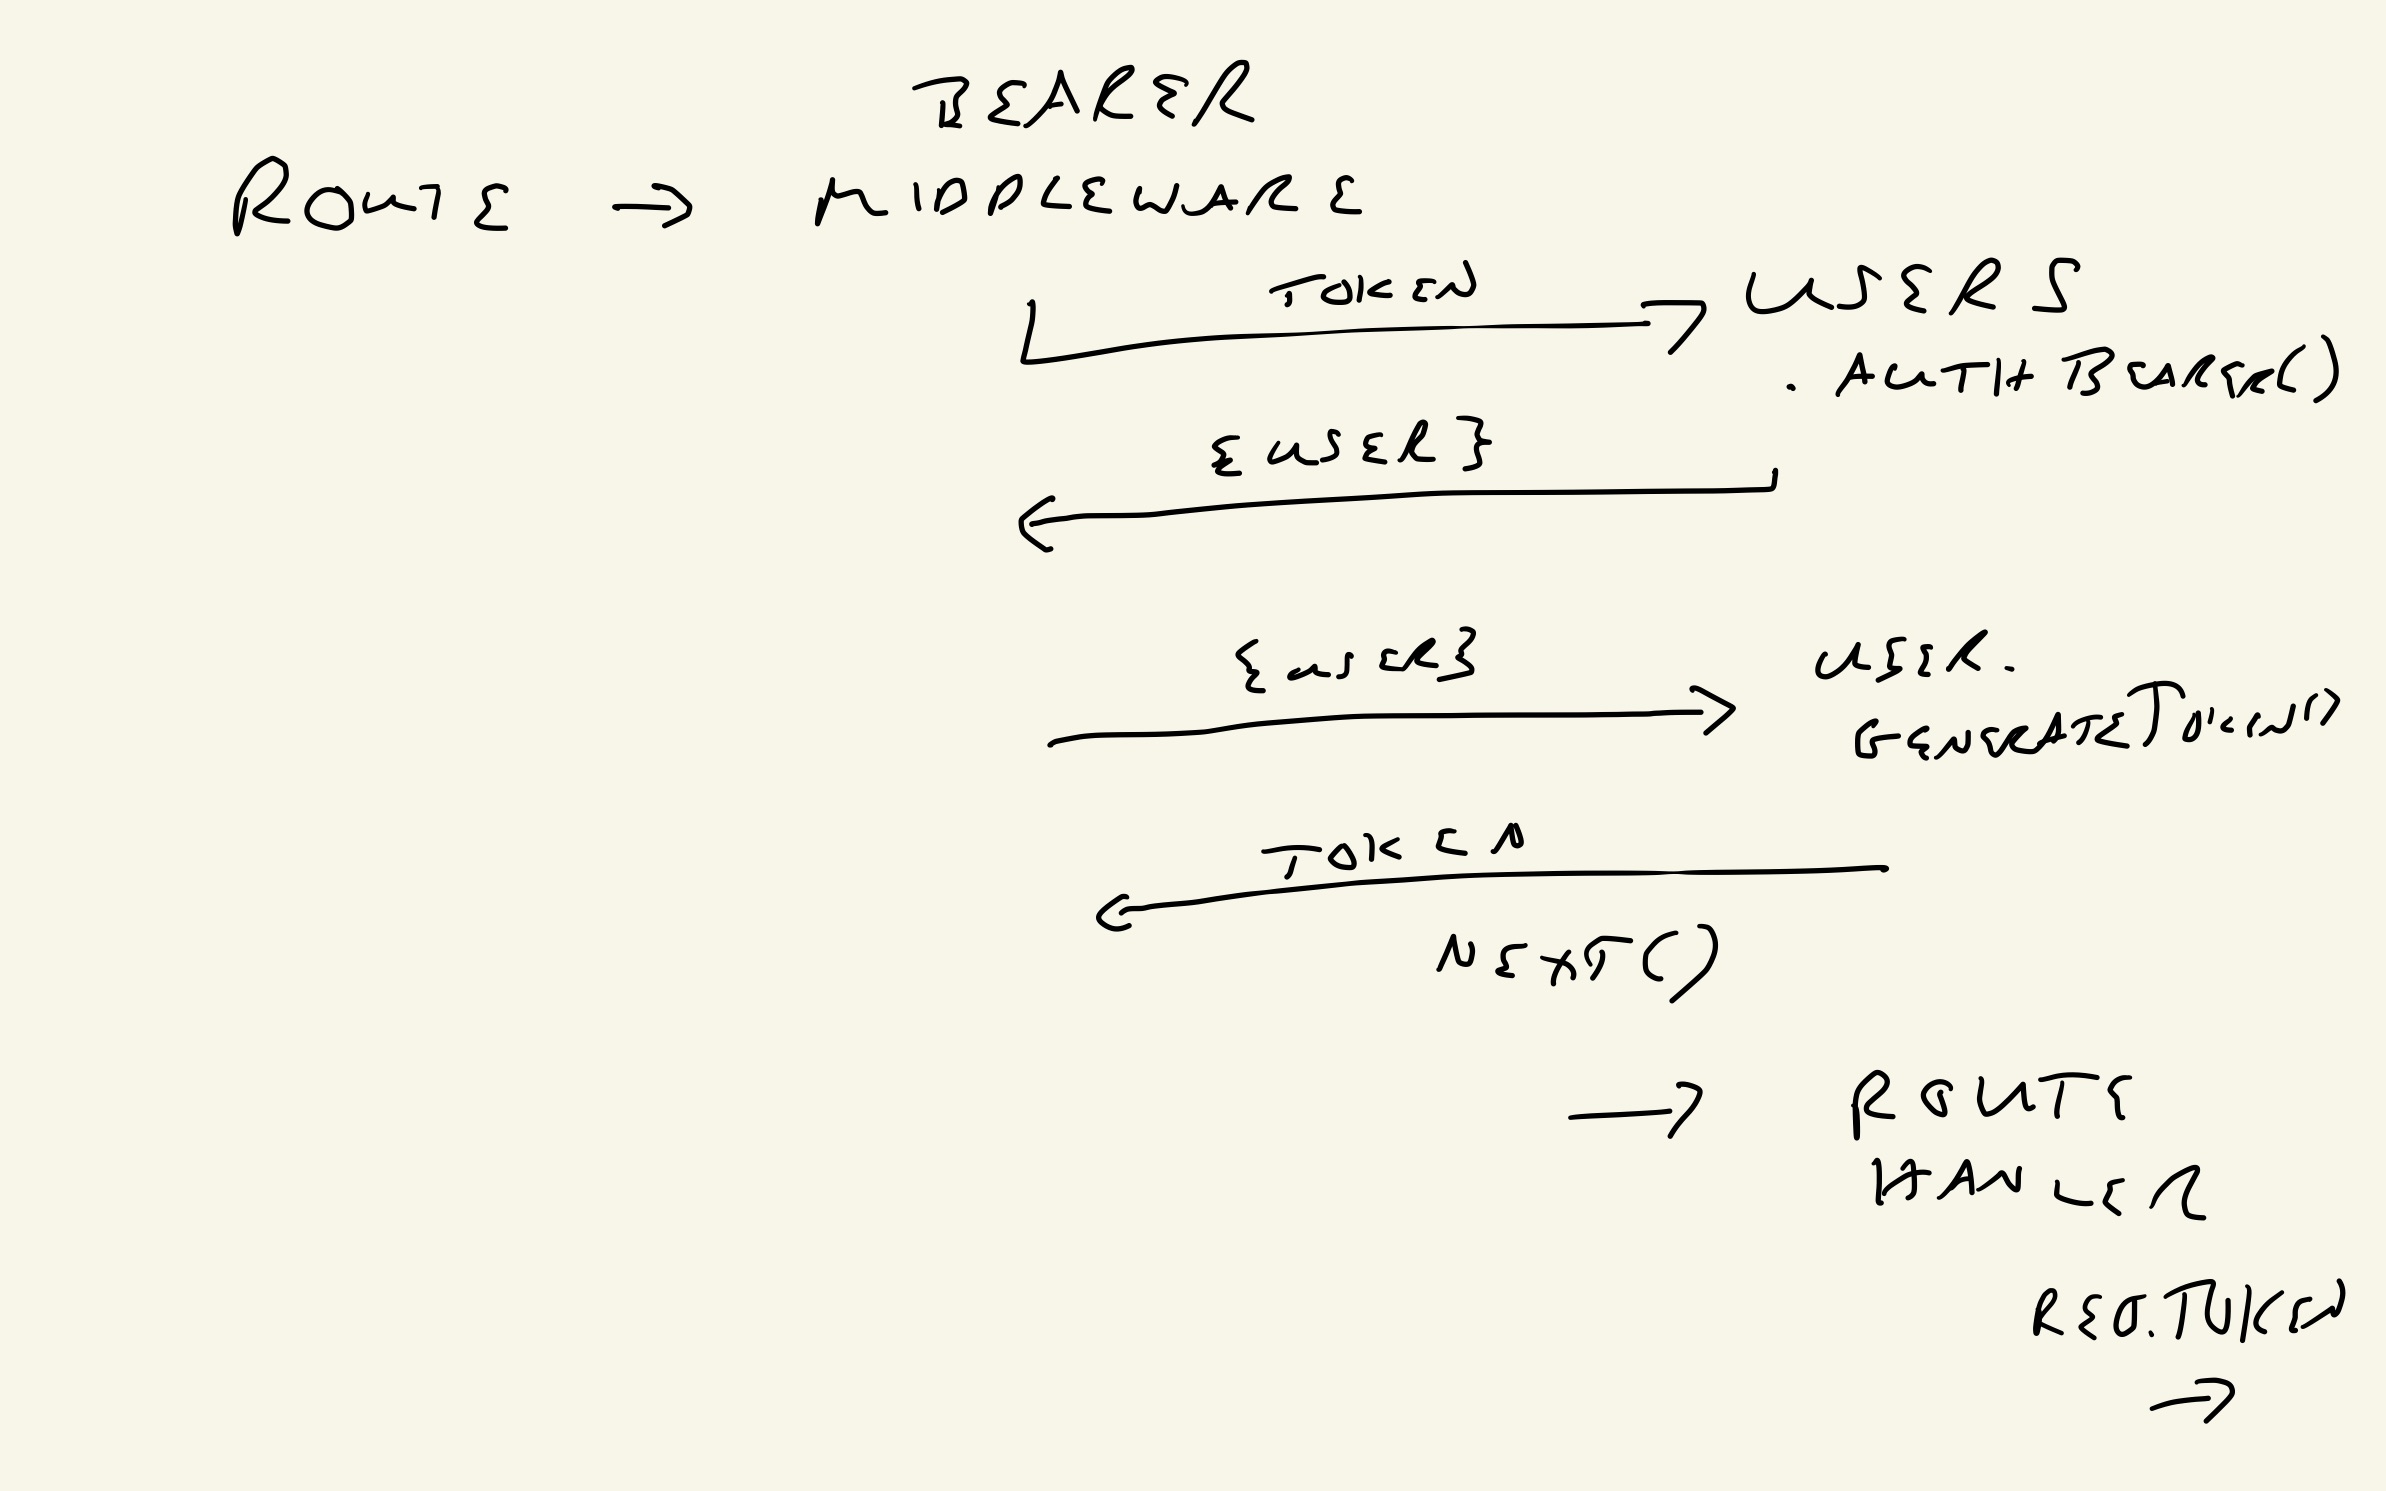 BEARER
ROUTE → MIDDLEWARE
TOKEN
USERS
. AUTHBEARER()
{USER}
{USER}
USER.
GENERATETOKEN()
TOKEN
NEXT()
→ ROUTE
HANLER
REQ.TOKEN
→